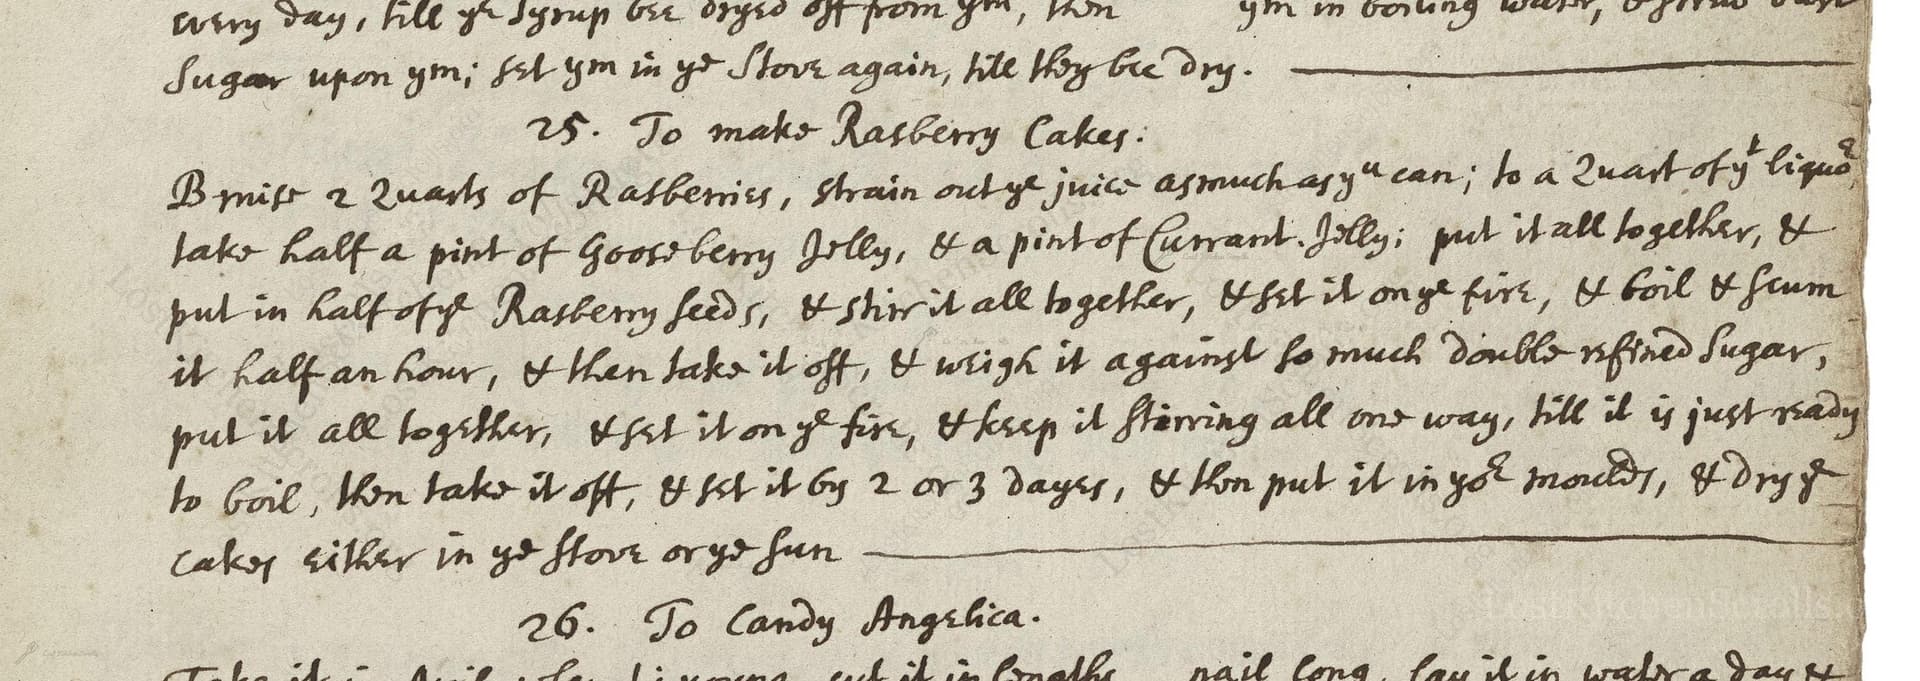 every day, till yᵉ Syrup bee dryed off from ym, then ym in boiling water, & strew
Sugar upon ym; set ym in yᵉ Stove again, till they bee dry.
25. To make Rasberry Cakes:
Bruise 2 Quarts of Rasberries, strain out yᵉ juice as much as yᵘ can; to a Quart of yᵗ liquoʳ,
take half a pint of Gooseberry Jelly, & a pint of Currant. Jelly; put it all together, &
put in half of yᵉ Rasberry seeds, & stirr it all together, & set it on yᵉ fire, & boil & scum
it half an hour, & then take it off, & weigh it against so much double refined Sugar,
put it all together, & set it on yᵉ fire, & keep it stirring all one way, till it is just ready
to boil, then take it off, & set it by 2 or 3 dayes, & then put it in yoʳ moulds, & dry yᵉ
cakes either in yᵉ stove or yᵉ sun
26. To Candy Angelica.
Take it in cut it in lengths nail long, lay it in water a day &